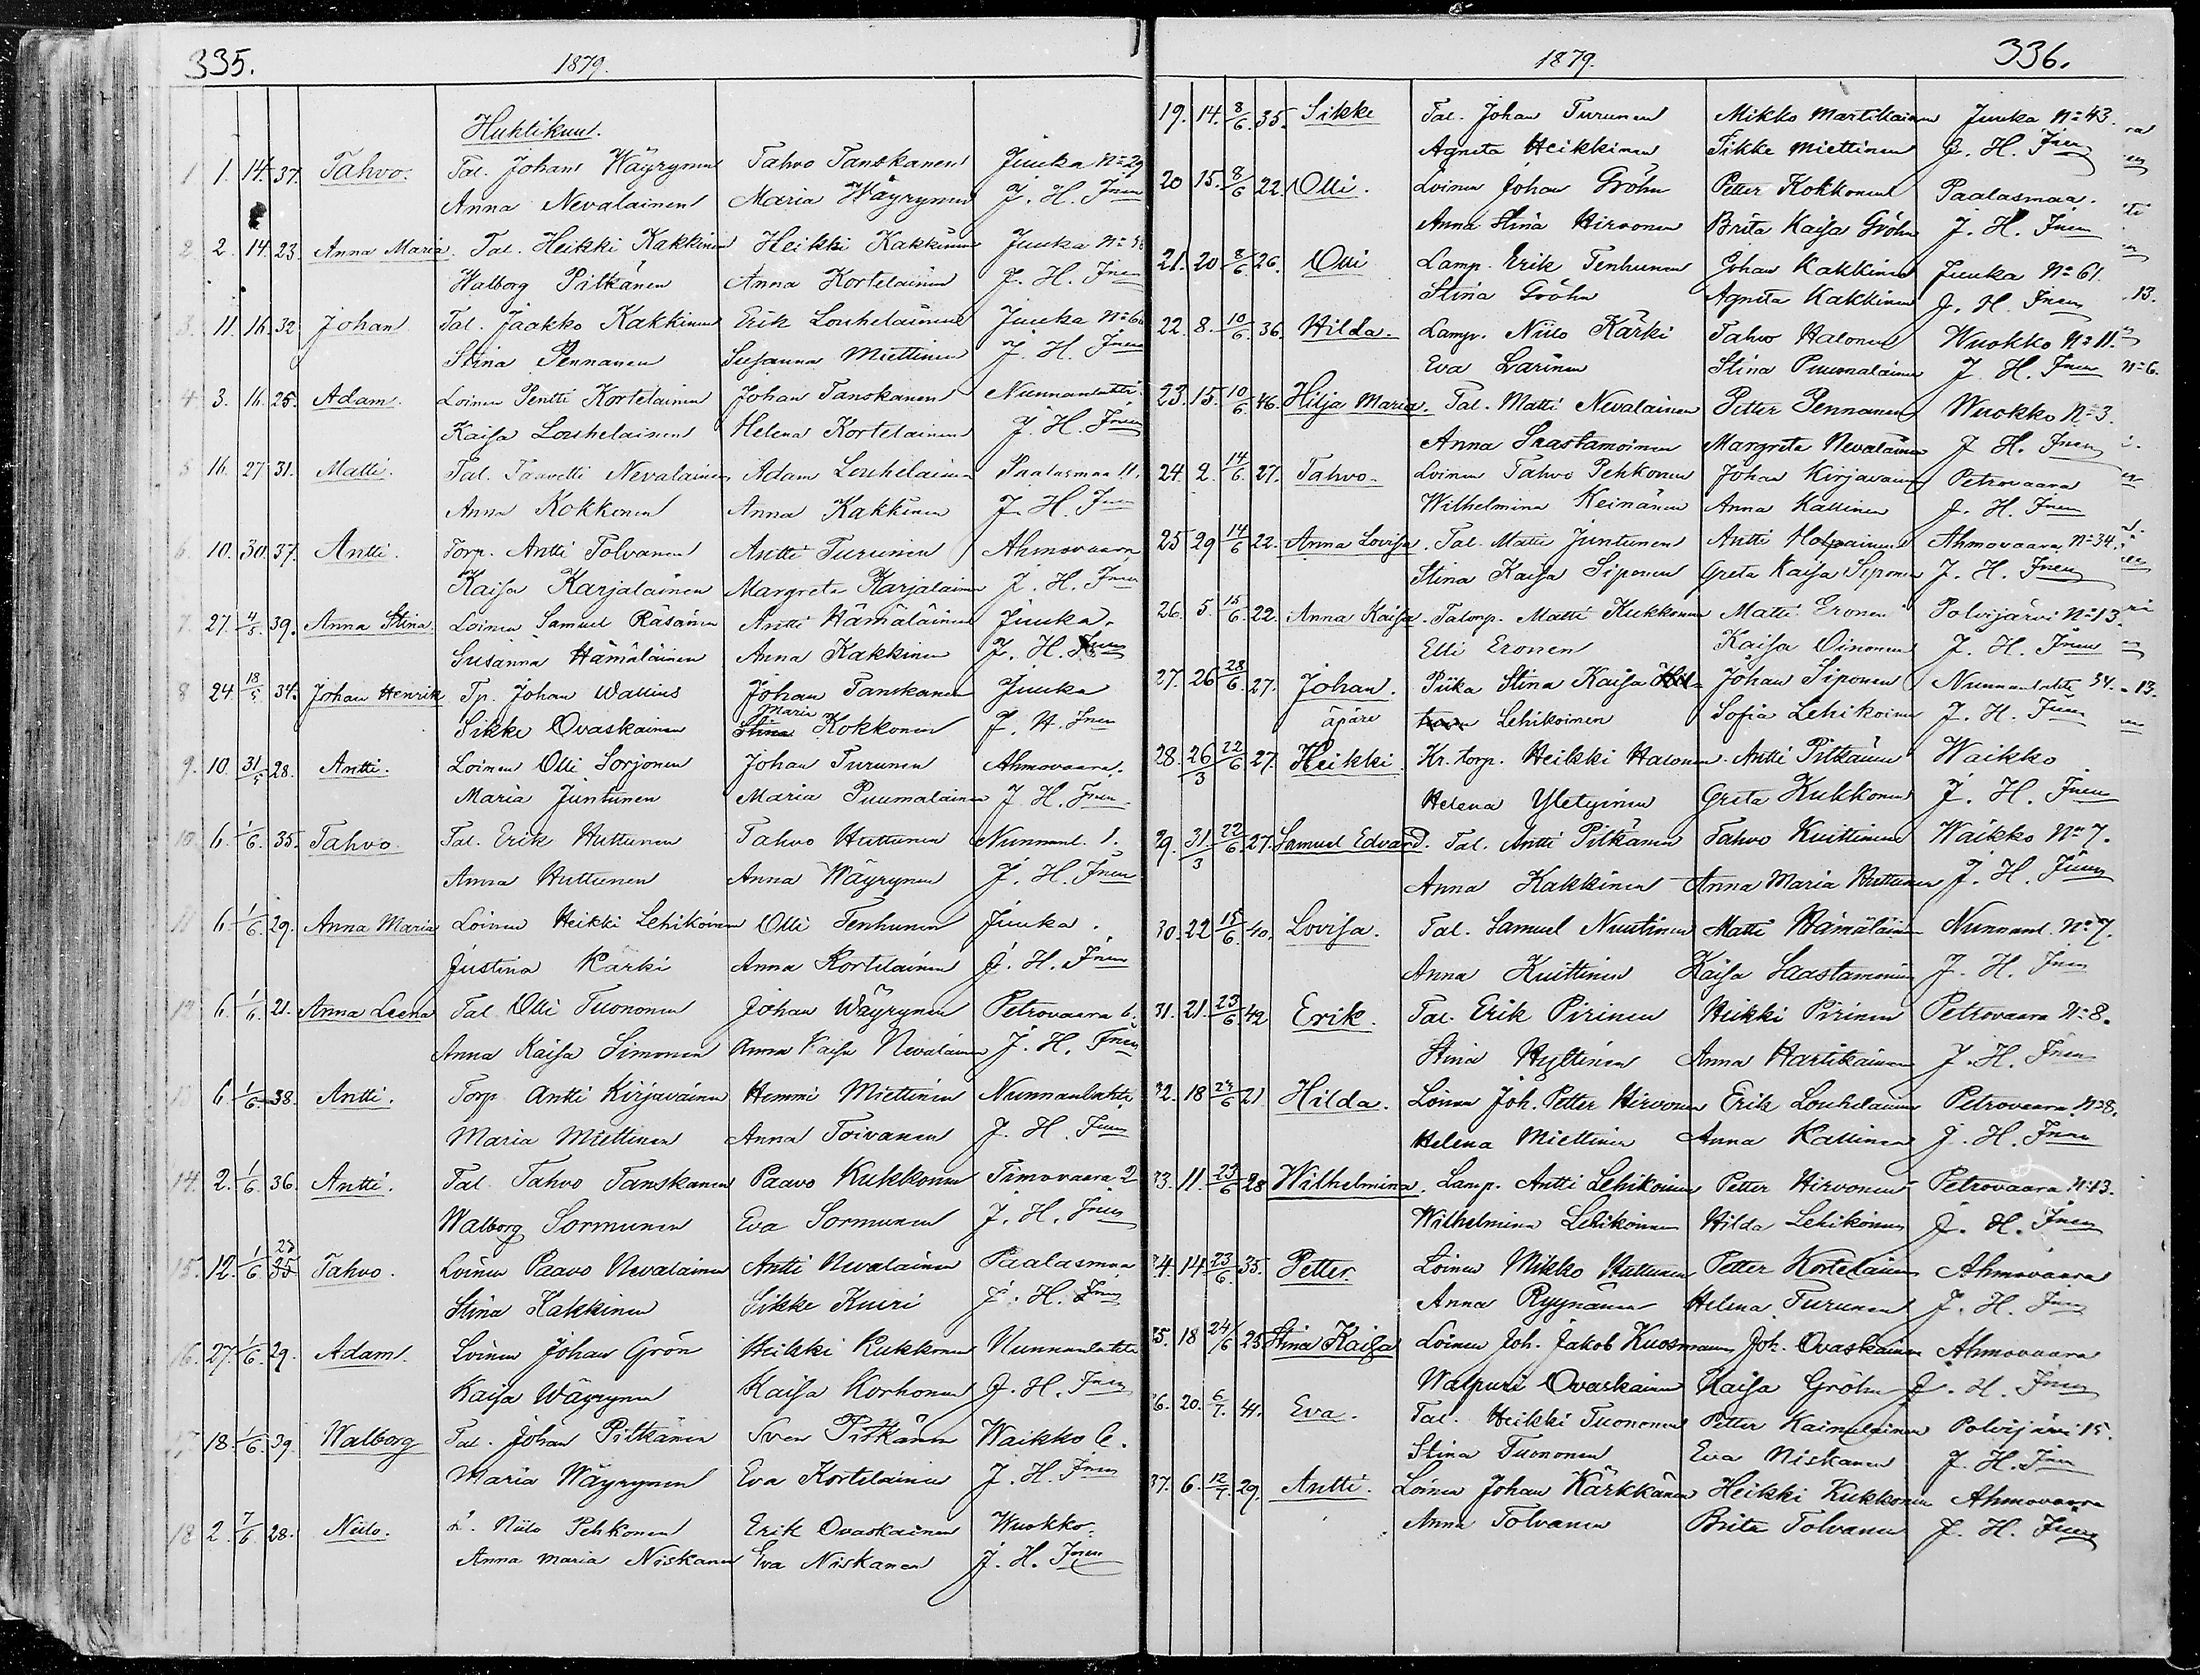 335. 1879.
Huhtikuu.
1 1. 14. 37. Tahvo. Tal. Johan Wäyrynen Tahvo Tanskanen Juuka No 29
Anna Nevalainen Maria Wäyrynen J. H. Inen
2 2. 14. 23. Anna Maria. Tal. Heikki Kakkinen Heikki Kakkinen Juuka No
Walborg Pitkänen Anna Kortelainen J. H. Inen
3. 11. 16. 32. Johan Tal. Jaakko Kakkinen Erik Louhelainen Juuka No 6
Stina Pennanen Susanna Miettinen J. H. Inen
4 3. 16. 25. Adam. Loinen Pentti Kortelainen Johan Tanskanen Nunnanlahti
Kaisa Louhelainen Helena Kortelainen J. H. Inen
5 16. 27 31. Matti. Tal. Taavetti Nevalainen Adam Louhelainen Paalasmaa 11.
Anna Kokkonen Anna Kakkinen J. H. Inen
6. 10. 30. 37. Antti. Torp. Antti Tolvanen Antti Turunen Ahmovaara
Kaisa Karjalainen Margreta Karjalainen J. H. Inen
7. 27. 4/5. 39. Anna Stina. Loinen Samuel Räsänen Antti Hämäläinen Juuka.
Susanna Hämäläinen Anna Kakkinen J. H. Inen
8 24 18/5 34. Johan Henrik Tp. Johan Wallius Johan Tanskanen Juuka
Maria
Sikke Ovaskainen Stina Kokkonen J. H. Inen
9. 10. 31/5 28. Antti. Loinen Olli Sorjonen Johan Turunen Ahmovaara.
Maria Juntunen Maria Puumalainen J. H. Inen
10 6. 1/6. 35. Tahvo. Tal. Erik Huttunen Tahvo Huttunen Nunnanl. 1.
Anna Huttunen Anna Wäyrynen J. H. Inen
11 6 1/6. 29. Anna Maria Loinen Heikki Lehikoinen Olli Tenhunen Juuka.
Justina Kärki Anna Kortelainen J. H. Inen
12 6. 1/6. 21. Anna Leena Tal. Olli Tuononen Johan Wäyrynen Petrovaara 6.
Anna Kaisa Simonen Anna Kaisa Nevalainen J. H. Inen
13 6. 1/6. 38. Antti. Torp. Antti Kirjavainen Hemmi Miettinen Nunnanlahti
Maria Miettinen Anna Toivanen J. H. Inen
14. 2. 1/6. 36. Antti. Tal. Tahvo Tanskanen Paavo Kukkonen Timovaara 2
Walborg Sormunen Eva Sormunen J. H. Inen
15. 12. 1/6 35 Tahvo. Loinen Paavo Nevalainen Antti Nevalainen Paalasmaa
Stina Kakkinen Sikke Kuiri J. H. Inen
16. 27. 1/6. 29. Adam. Loinen Johan Grön Heikki Kukkonen Nunnanlahti
Kaisa Wäyrynen Kaisa Korhonen J. H. Inen
17 18. 1/6. 39. Walborg Tal. Johan Pitkänen Sven Pitkänen Waikko 6.
Maria Wäyrynen Eva Kortelainen J. H. Inen
18 2. 7/6. 28. Niilo. L. Niilo Pehkonen Erik Ovaskainen Wuokko.
Anna Maria Niskanen Eva Niskanen J. H. Inen
1879. 336.
19. 14. 8/6. 35. Sikke Tal. Johan Turunen Mikko Martikainen Juuka No 43.
Agneta Heikkinen Sikke Miettinen J. H. Inen
20 15. 8/6 22. Olli. Loinen Johan Gröhn Petter Kokkonen Paalasmaa.
Anna Stina Hirvonen Brita Kaisa Gröhn J. H. Inen
21. 20. 8/6 26. Olli Lamp. Erik Tenhunen Johan Kakkinen Juuka No 61.
Stina Gröhn Agneta Kakkinen J. H. Inen
22. 8. 10/6. 36. Hilda. Lamp. Niilo Kärki Tahvo Halonen Wuokko No 11.
Eva Larinen Stina Puumalainen J. H. Inen
23. 15. 10/6. 46. Hilja Maria. Tal. Matti Nevalainen Petter Pennanen Wuokko No 3.
Anna Saastamoinen Margreta Nevalainen J. H. Inen
24. 2. 14/6. 27. Tahvo. Loinen Tahvo Pehkonen Johan Kirjavainen Petrovaara
Wilhelmina Keinänen Anna Kallinen J. H. Inen
25 29 14/6 22. Anna Lovisa. Tal. Matti Juntunen Antti Holpainen Ahmovaara No 34.
Stina Kaisa Siponen Greta Kaisa Siponen J. H. Inen
26. 5. 15/6. 22. Anna Kaisa. Talonp. Matti Kukkonen Matti Eronen Polvijärvi No 13.
Elli Eronen Kaisa Oinonen J. H. Inen
27. 26 28/6. 27. Johan. Piika Stina Kaisa Johan Siponen Nunnanlahti 34.
äpäre Lehikoinen Sofia Lehikoinen J. H. Inen
28. 26/3 22/6 27. Heikki. Kr. torp. Heikki Halonen Antti Pitkänen Waikko
Helena Yletyinen Greta Kukkonen J. H. Inen
29. 31./3 22/6. 27. Samuel Edvard. Tal. Antti Pitkänen Tahvo Kuittinen Waikko No 7.
Anna Kakkinen Anna Maria Huttunen J. H. Inen
30. 22 15/6. 40. Lovisa. Tal. Samuel Nuutinen Matti Hämäläinen Nunnanl. No 7.
Anna Kuittinen Kaisa Saastamoinen J. H. Inen
31. 21. 23/6 42 Erik. Tal. Erik Pirinen Heikki Pirinen Petrovaara No 8.
Stina Hyttinen Anna Hartikainen J. H. Inen
32. 18 23/6 21 Hilda. Loinen Joh. Petter Hirvonen Erik Louhelainen Petrovaara No 8.
Helena Miettinen Anna Kallinen J. H. Inen
33. 11. 23/6 28 Wilhelmina. Lamp. Antti Lehikoinen Petter Hirvonen Petrovaara No 13.
Wilhelmina Lehikoinen Hilda Lehikoinen J. H. Inen
34. 14 23/6. 35. Petter Loinen Mikko Huttunen Petter Kortelainen Ahmovaara
Anna Ryynänen Helena Turunen J. H. Inen
35. 18 24/6 25 Stina Kaisa Loinen Joh. Jakob Kuosmanen Joh. Ovaskainen Ahmovaara
Walpuri Ovaskainen Kaisa Gröhn J. H. Inen
36. 20. 6/7. 41. Eva. Tal. Heikki Tuononen Petter Kaimulainen Polvijärvi 15.
Stina Tuononen Eva Niskanen J. H. Inen
37. 6. 12/7. 29. Antti. Loinen Johan Kärkkänen Heikki Kukkonen Ahmovaara
Anna Tolvanen Brita Tolvanen J. H. Inen